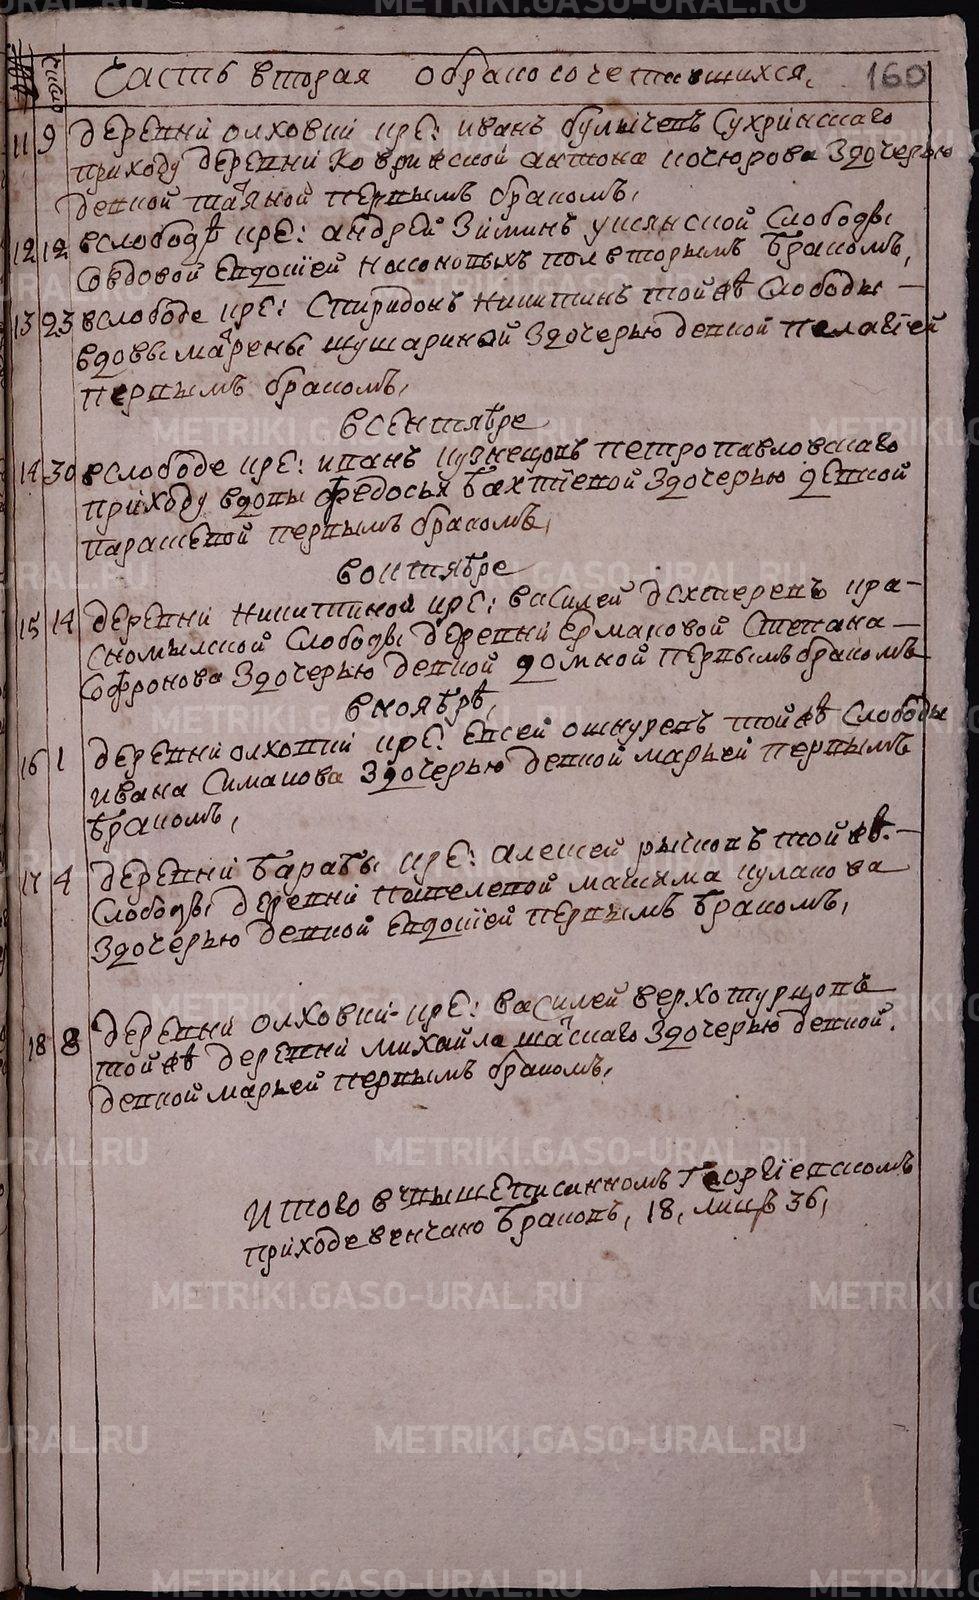 числo Часть вторая о бракосочетавшихся, 160
11 9 деревни олховки кре: иванъ булычевъ Сухринскаго
приходу деревни Ковринской антона кочюрова Здочерью
девкой татяной первымъ бракомъ,
12 12 вслободѣ кре: андрей Зиминъ уксянской Слободы
Совдовой Евдокіей насоновыхъ полвторымъ бракомъ,
13 23 вслободе кре: Спиридонъ никитинъ тойжѣ Слободы
вдовы марены шушариной Здочерью девкой пелагіей
первымъ бракомъ,
всентябре
14 30 вслободе кре: иванъ кузнецовъ петропавловскаго
приходу вдовы федосьи бахтіевой Здочерью девкой
парасковой первымъ бракомъ,
воктябре
15 14 деревни никитиной кре: василей дехтеревъ кра-
Сномылской Слободы деревни ермаковой Степана
Софронова Здочерью девкой домной первымъ бракомъ
вноябрѣ,
16 1 деревни олховки кре: евсей ошкуревъ тойжѣ Слободы
ивана Симакова Здочерью девкой марьей первымъ
бракомъ,
17 4 деревни барабы кре: алексей рычковъ тойжѣ.
Слободы деревни максима кулакова
Здочерью девкой Евдокіей первымъ бракомъ,
18 8 деревни олховки кре: василей верхотурцовъ
тойжѣ деревни михайла Здочерью девкой.
девкой марьей первымъ бракомъ,
Итого ввышеписанномъ Георгіевскомъ
приходе венчано браковъ, 18, лицъ 36,
METRIKI.GASO-URAL.RU